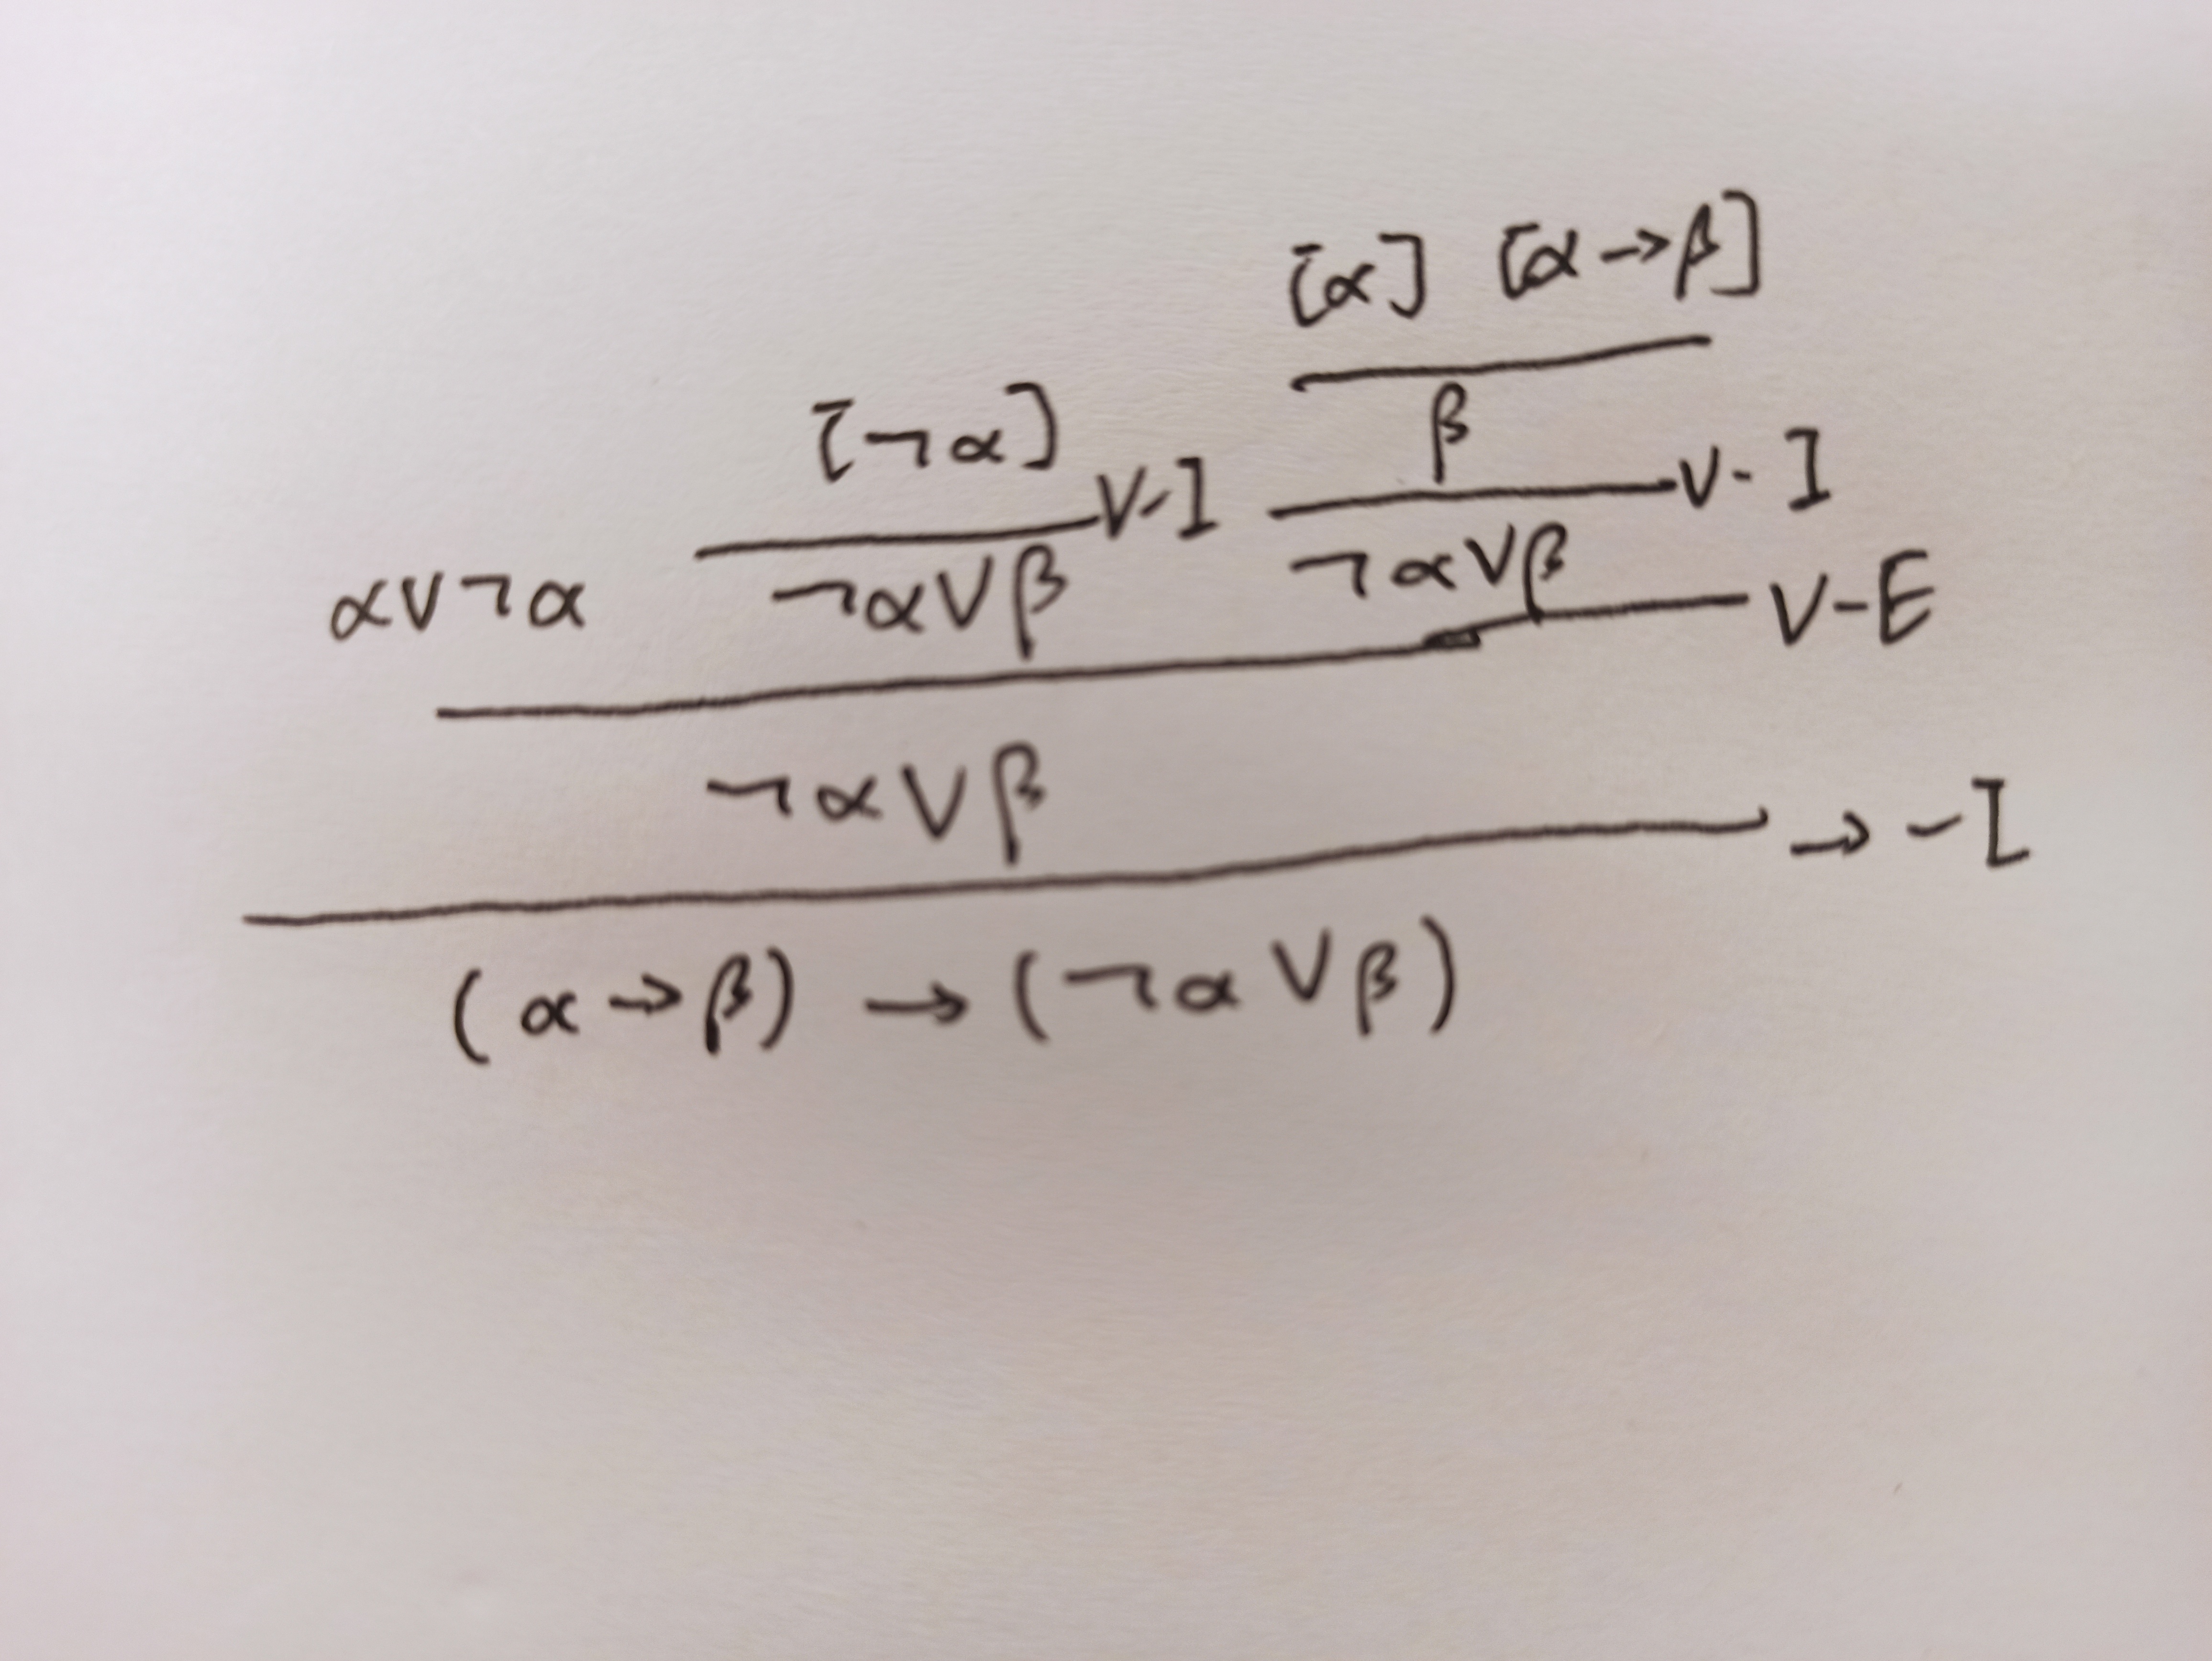 [α] [α→β]
β
[¬α] ∨-I ∨-I
α∨¬α ¬α∨β ¬α∨β ∨-E
¬α∨β
→-I
(α→β) → (¬α∨β)